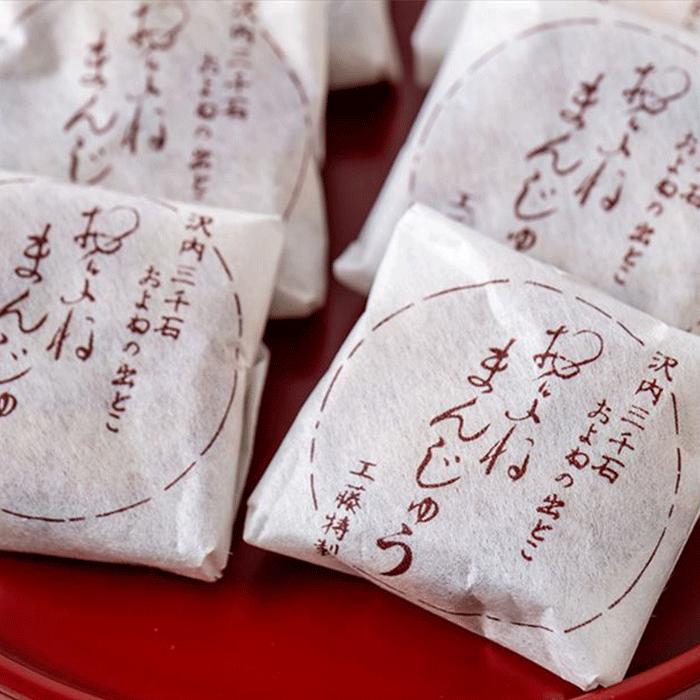 沢内三千石
およねの出どこ
およね
まんじゅう
工藤特製
沢内三千石
およねの出どこ
およね
まんじゅ
沢内三千石
およねの出どこ
およね
まんじ
およねの出どこ
およね
まんじゅ
工